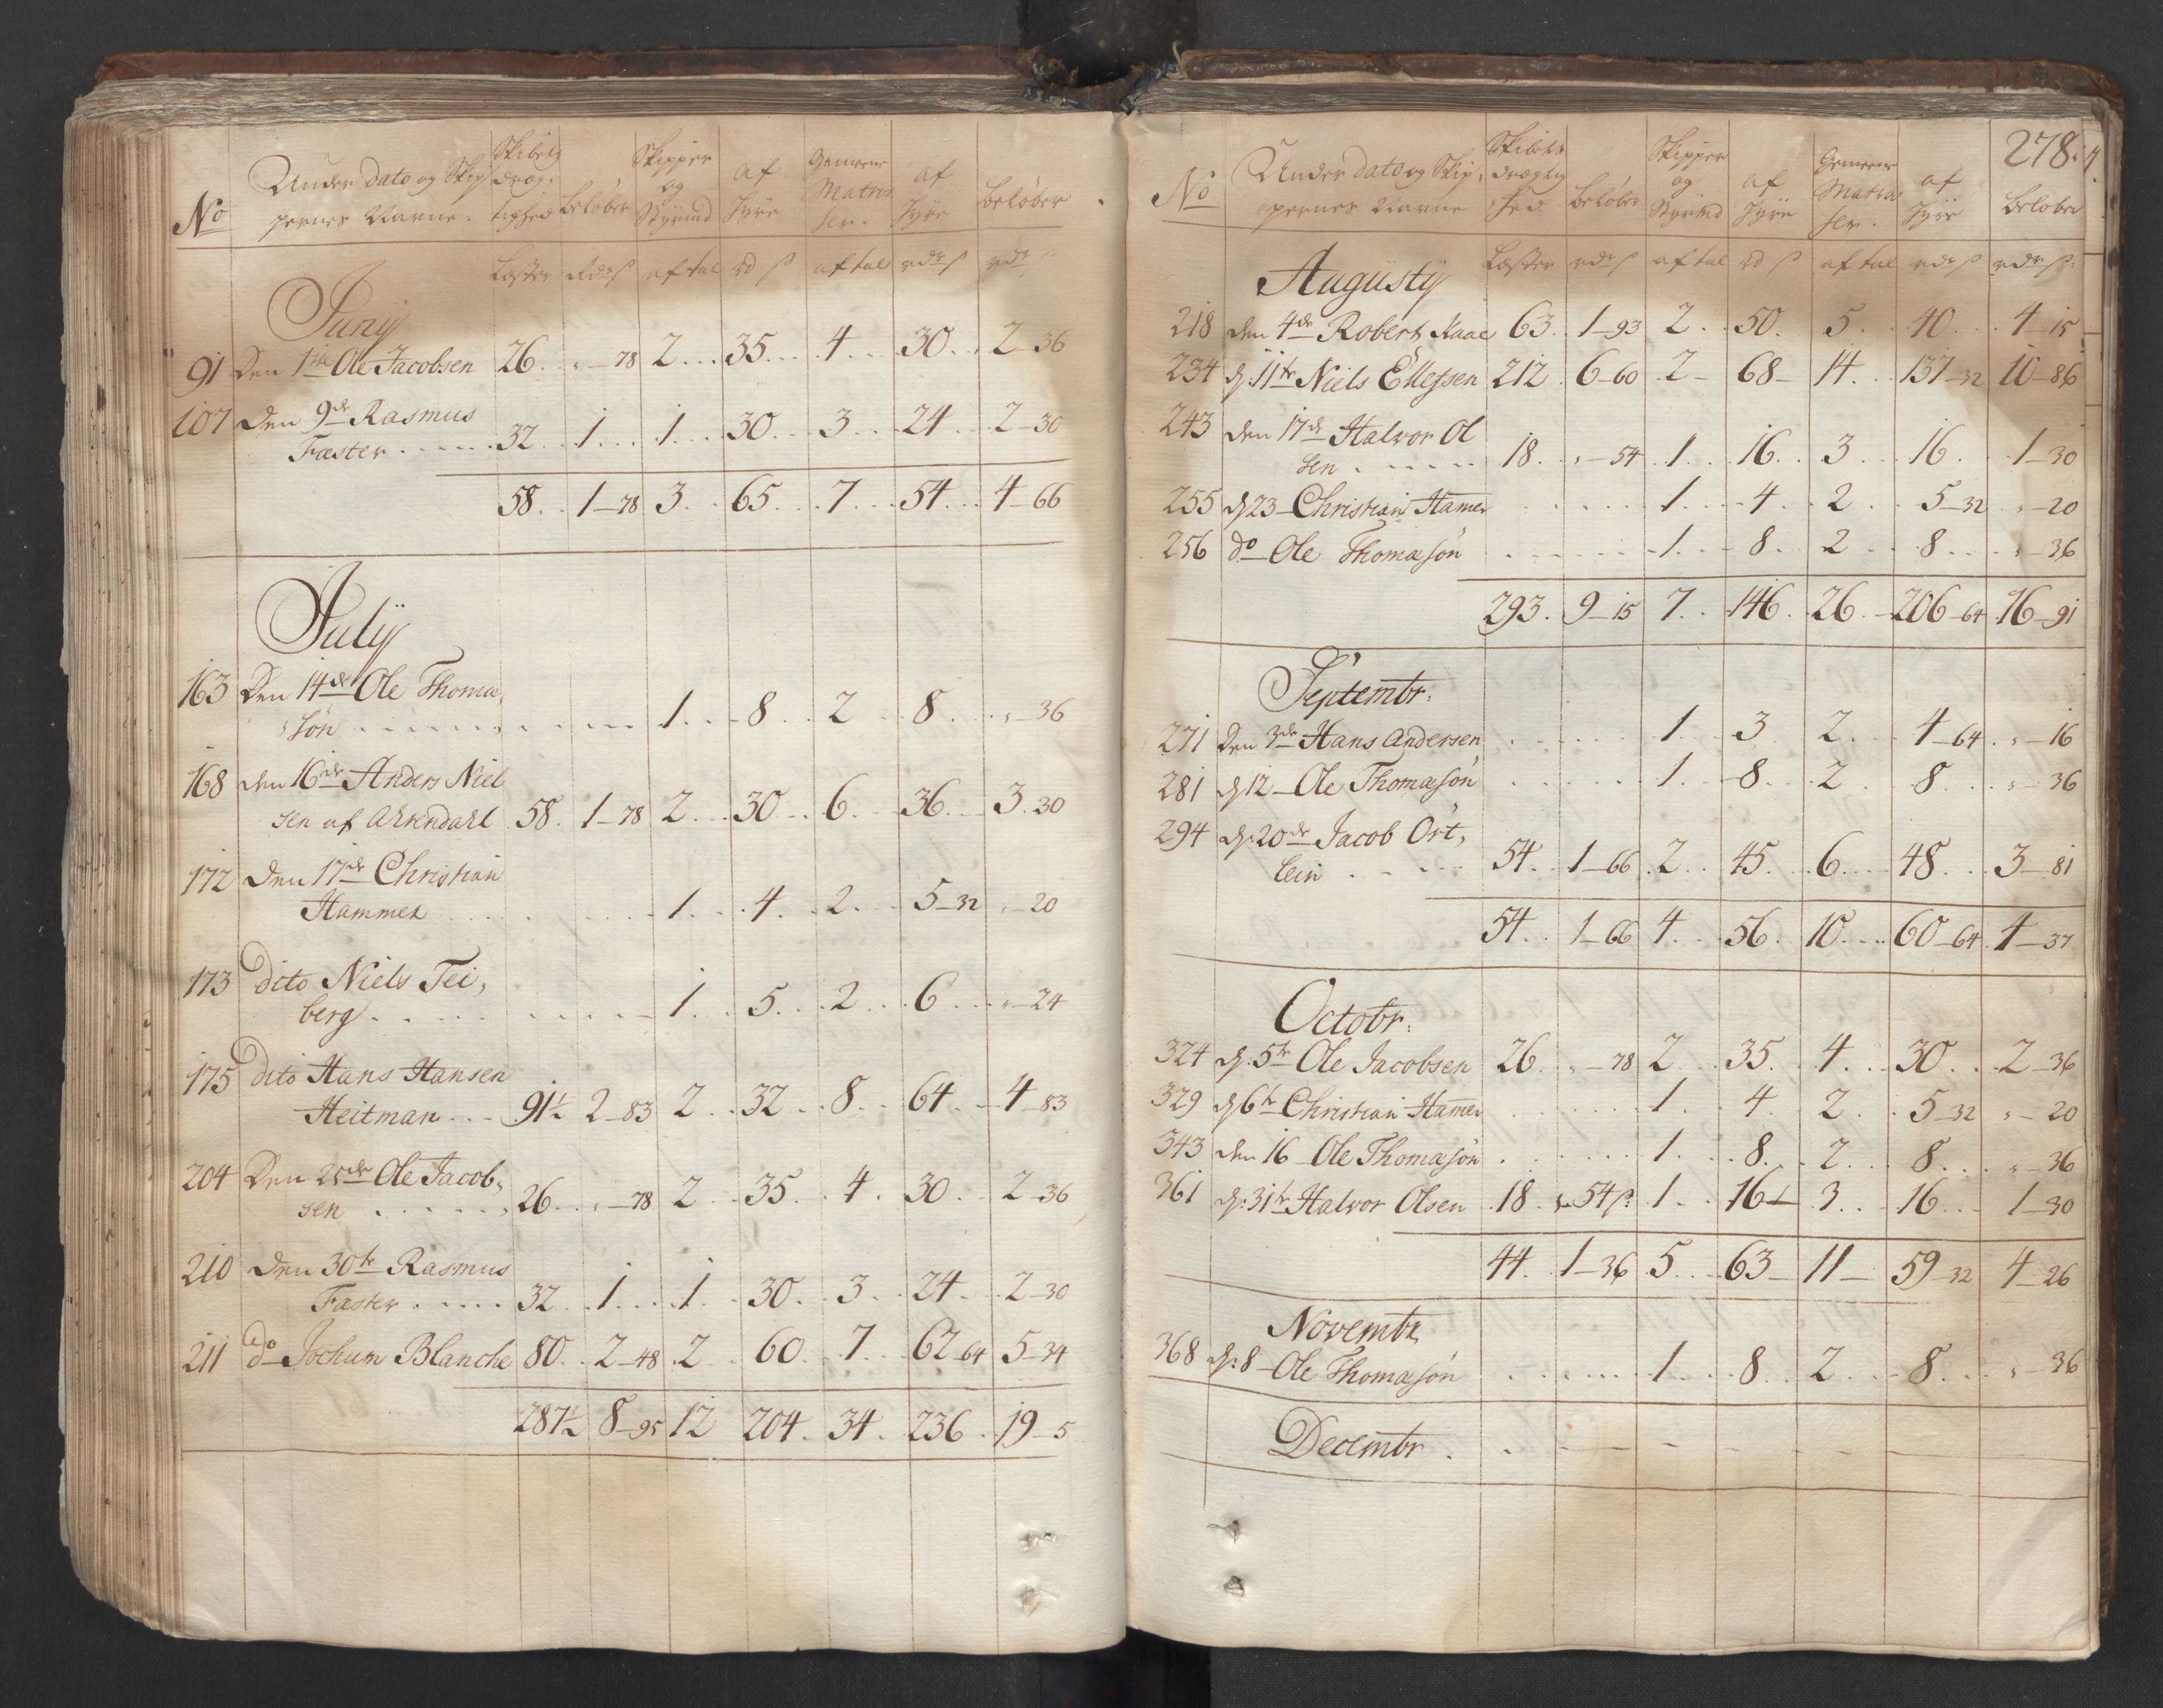 No Under dato og Skip, Skibets dræg, Beløber Skipper af Gemeene af Beløber
pernes Navne. tighed og Styrmd hyre Matros ser. hyre
Læster Rdr ß aftal rd ß aftal rdr ß rdr ß
Junÿ
91 Den 1ste Ole Jacobsen 26 . „ - 78 2 . . . 35 . . . 4 . . . 30 . . 2 - 36
107 Den 9de Rasmus
Faster . . . . . 32 . . 1 . . . 1 . . . 30 . . 3 . . 24 . . 2 - 30
58 . . 1 - 78 3 . . 65 . . 7 . . . 54 . . 4 - 66
Julÿ
163 Den 14de Ole Thoma,
søn . . . . . 1 . . 8 . . 2 . . 8 . . „ - 36
168 den 16de Anders Niel
sen af Arendahl 58 . 1 - 78 2 . . 30 . . 6 . . . 36 . . 3 . 30
172 Den 17de Christian
Hammer . . . . 1 . . 4 . . 2 . . 5 - 32 „ - 20
173 dito Niels Tei,
berg . . . . . 1 . . 5 . . 2 . . 6 . . . „ - 24
175 dito Hans Hansen
Heitman . . . 91½ 2 - 83 2 . . 32 . . 8 . . 64 . . 4 - 83
204 Den 25de Ole Jacob,
sen . . . . . 26 . . „ - 78 2 . . 35 . . 4 . 30 . . 2 - 36
210 Den 30te Rasmus
Faster . . . . 32 . . 1 . . . 1 . . 30 . . 3 . . 24 . . 2 - 30
211 do Jochum Blanche 80 . . 2 - 48 . 2 . . 60 . . 7 . . 62 64 5 - 34
287½ 8 - 95 12 204 . 34 . 236 . 19 - 5
278.
No Under dato og Skip, Skibets drægtig Beløber Skipper af Gemeene af Beløber
pernes Navne hed og Styrmd hyre Matros ser. hyre
Læster rdr ß aftal rd ß aftal rdr ß rdr ß
Augustÿ
218 den 4de Robert Kaae 63 . 1 - 93 2 . . 50 . 5 . . 40 . . . 4 - 15
234 d: 11te Niels Ellefsen 212 . 6 - 60 . 2 - 68 - 14 . . . 137 - 32 10 - 86
243 den 17de Halvor Ol
sen . . . . . 18 . . „ - 54 . 1 . . 16 . . 3 . . . 16 . 1 - 30
255 d 23 - Christian Hamer . . . . 1 . . . 4 . . 2 . . 5 - 32 „ - 20
256 do - Ole Thomasøn . . . . . 1 . . . 8 . . 2 . . . 8 . . . „ - 36
293 . 9 - 15 7 . . 146 . 26 . - 206 - 64 16 - 91
Septembr:
271 Den 3de Hans Andersen . . . . 1 . . . 3 2 . . . 4 - 64 . „ - 16
281 d 12 - Ole Thomasøn . . . . 1 . . 8 . . 2 . 8 . . . „ - 36
294 d: 20de Jacob Ort,
lein . . . . 54 . . 1 - 66 . 2 . . 45 . . 6 . . . 48 . . . 3 - 81
54 . . 1 - 66 4 . . . 56 . 10 . . . 60 - 64 . 4 - 37
Octobr:
324 d: 5te Ole Jacobsen 26 „ - 78 2 35 . . 4 . . . 30 . . . 2 - 36
329 d 6te Christian Hamer . . . . 1 . . 4 . 2 . . 5 - 32 „ - 20
343 den 16 - Ole Thomasøn . . . . . 1 . . . 8 . . 2 . . . 8 . . . „ - 36
361 d: 31te Halvor Olsen . 18 . „ - 54 ß: 1 . . 16 - 3 . . . 16 . . . 1 - 30
44 . 1 - 36 5 . . . 63 - 11 - 59 - 32 4 - 26
Novembr
368 d: 8 - Ole Thomasøn . . . . . 1 . . . 8 . . 2 . . . 8 . . . „ - 36
Decembr .